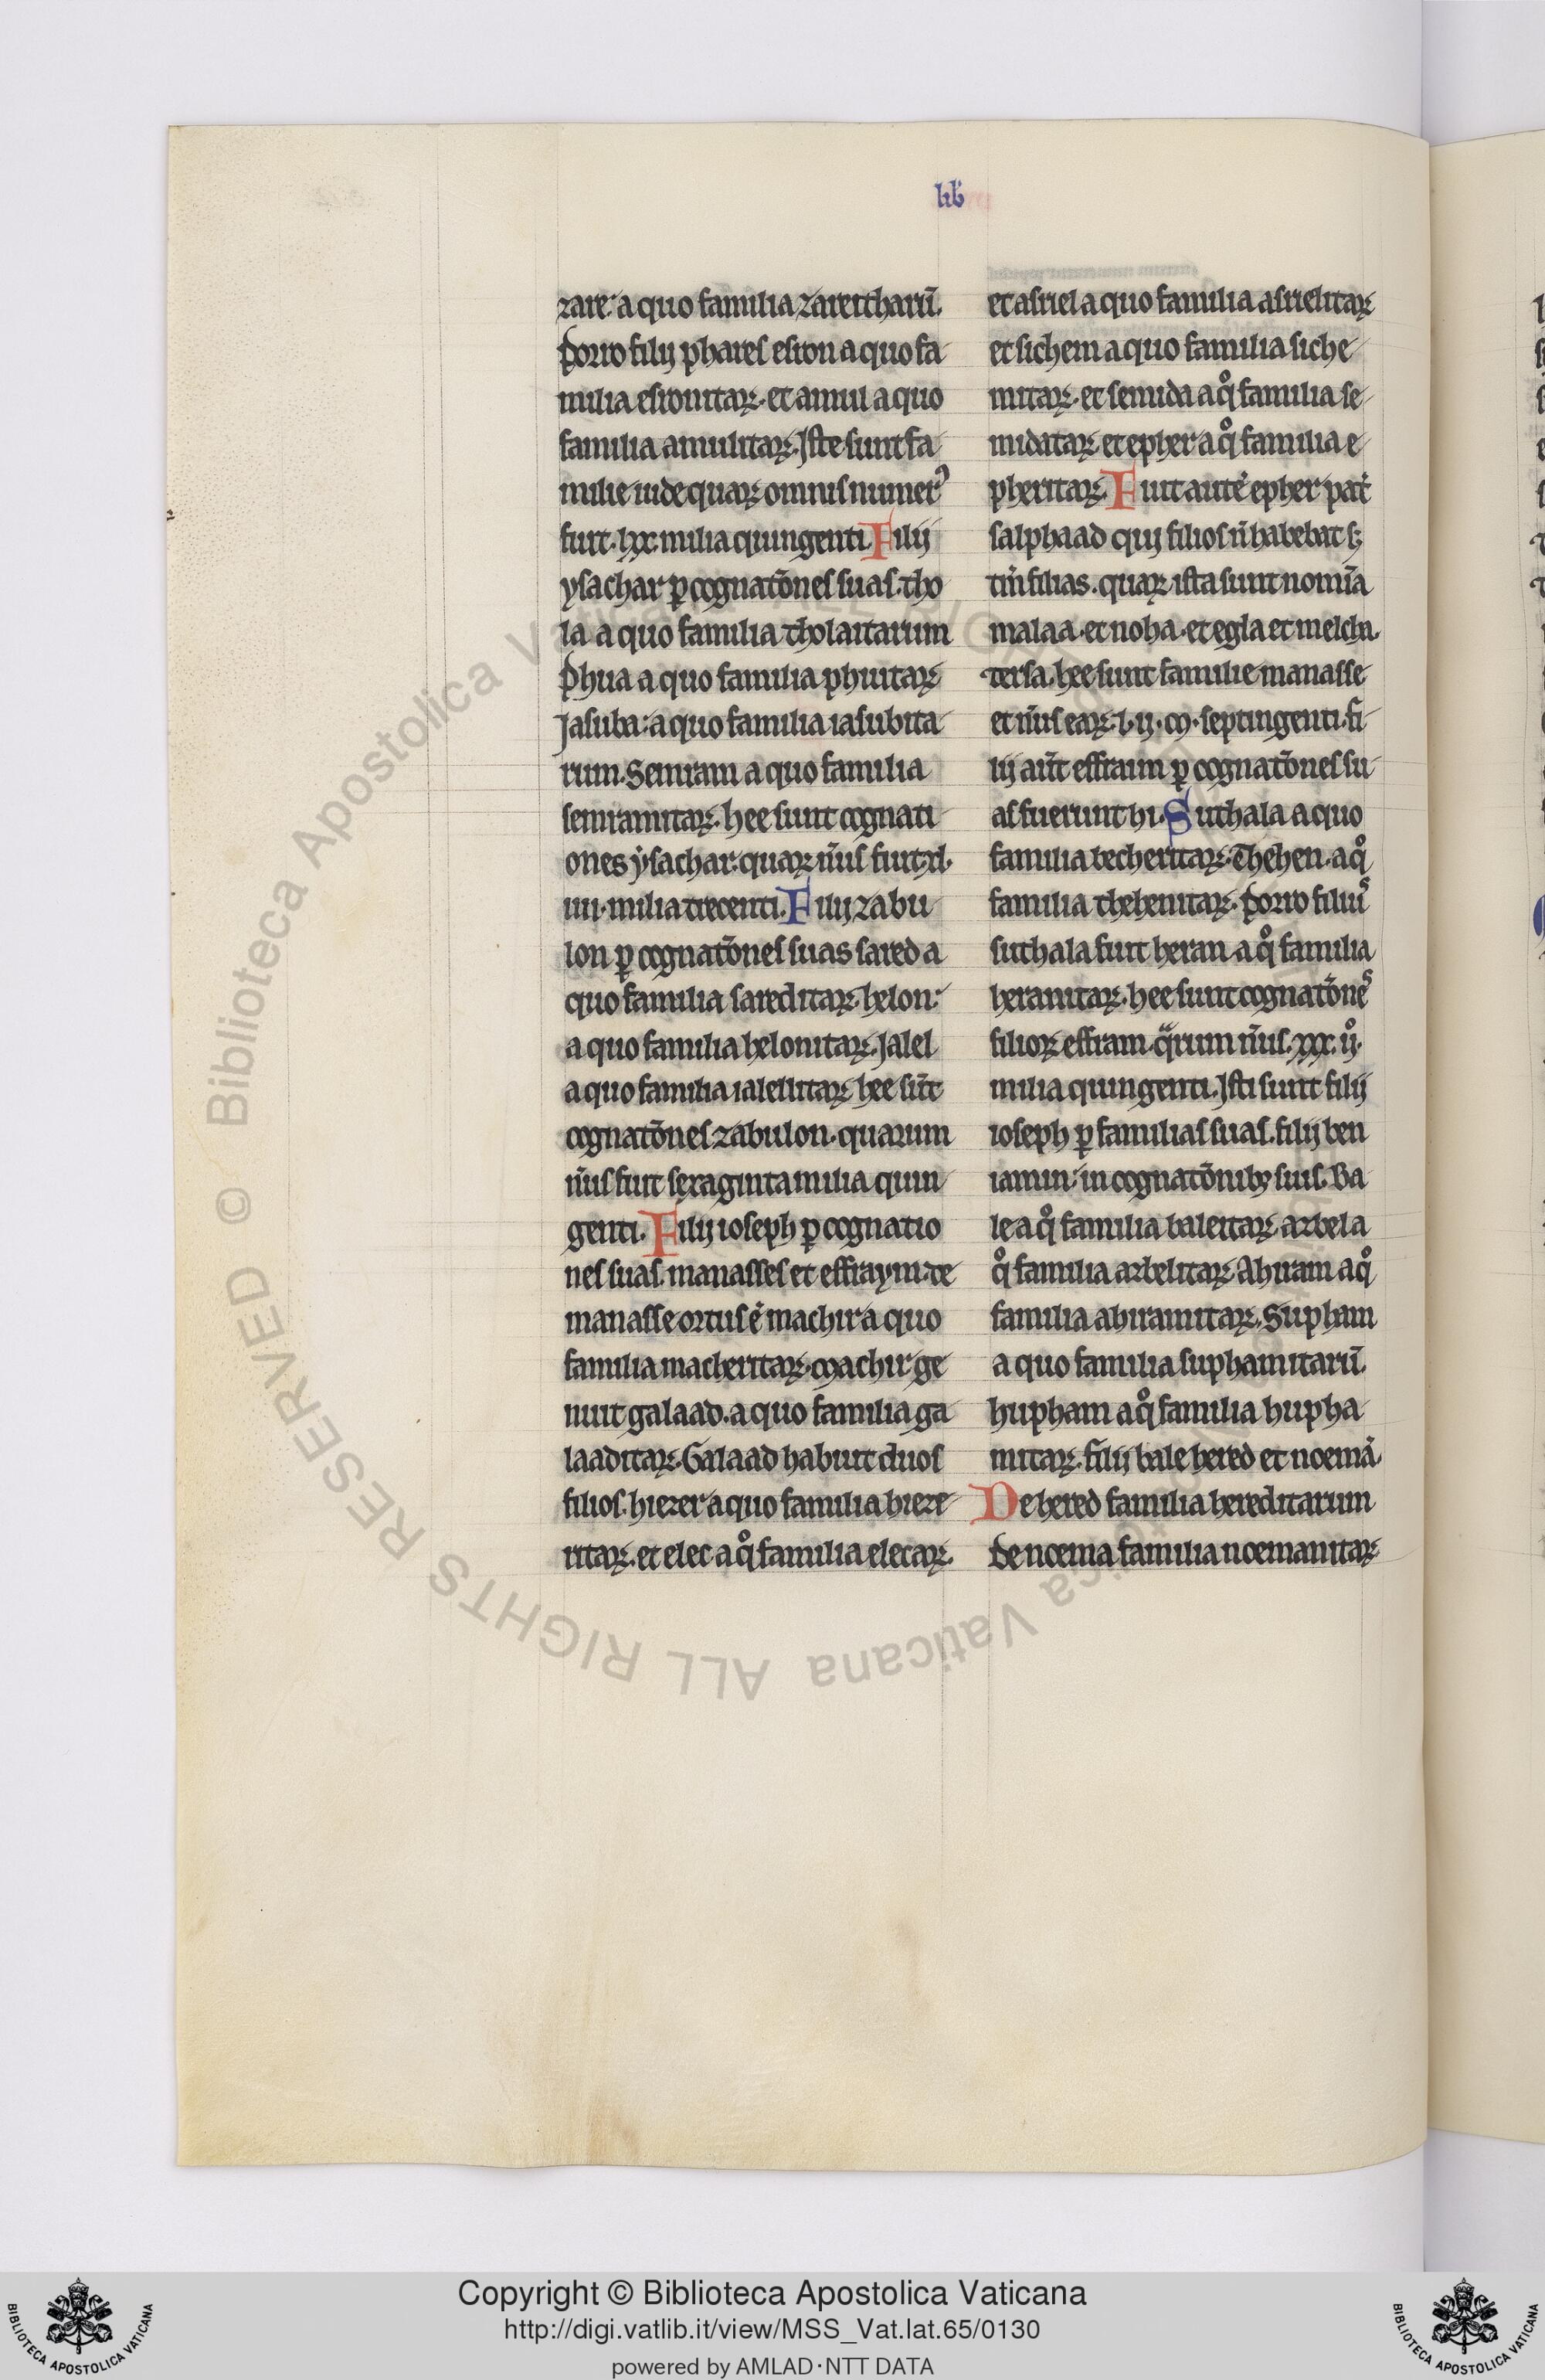 lib̃
zare: a quo familia zareitharũ.
Porro filij phares esron a quo fa
milia esronitaꝝ. et amul a quo
familia amulitaꝝ. Iste sunt fa
milie iude quaꝝ omnis numerꝰ
fuit. lxx. milia quingenti. Filij
ysachar ꝑ cognatõnes suas. tho
la a quo familia tholaitarum
Phua a quo familia phuitaꝝ
Jasuba: a quo familia iasubita
rum. Semram a quo familia
semramitaꝝ. hee sunt cognati
ones ẏsachar. quaꝝ nũs fuit xl.
iiii. milia trecenti. Filij zabu
lon ꝑ cognatõnes suas sared a
quo familia sareditaꝝ. helon:
a quo familia helonitaꝝ. Jalel
a quo familia ialelitaꝝ hee sũt
cognatõnes zabulon. quarum
nũs fuit sexaginta milia quin
genti. Filij ioseph ꝑ cognatio
nes suas. manasses et effraym. de
manasse ortus ẽ machir a quo
familia macheritaꝝ. machir ge
nuit galaad. a quo familia ga
laaditaꝝ. Galaad habuit duos
filios. hiezer a quo familia hieze
ritaꝝ. et elec a qͦ familia elecaꝝ.
et asriel a quo familia asrielitaꝝ
et sichem a quo familia siche
mitaꝝ. et semida a qͦ familia se
midataꝝ. et epher a qͦ familia e
pheritaꝝ. Fuit autẽ epher pat̃
salphaad qui filios ñ habebat sꝫ
tm̃ filias. quaꝝ ista sunt nomĩa
malaa. et noha. et egla et melcha.
tersa. hee sunt familie manasse
et nũs eaꝝ. l. ij. m. septingenti. fi
lij aũt effraim ꝑ cognatõnes su
as fuerunt hi. Suthala a quo
familia becheritaꝝ. Thehen. a qͦ
familia thehenitaꝝ. Porro filiuˢ
suthala fuit heran a qͦ familia
heranitaꝝ. hee sunt cognatõneˢ
filioꝝ effram. qᵃrum nũs. xxx. ijͦ.
milia quingenti. Isti sunt filij
ioseph ꝑ familias suas. filij ben
iamin. in cognatõnibꝫ suis. Ba
le a qͦ familia baleitaꝝ. arbel a
qͦ familia arbelitaꝝ. Ahiram a qͦ
familia ahiramitaꝝ. Supham
a quo familia suphamitarũ.
hupham a qͦ familia hupha
mitaꝝ. filij bale hered et noemã.
De hered familia hereditarum
de noema familia noemanitaꝝ
Copyright © Biblioteca Apostolica Vaticana
http://digi.vatlib.it/view/MSS_Vat.lat.65/0130
powered by AMLAD·NTT DATA
BIBLIOTECA APOSTOLICA VATICANA
BIBLIOTECA APOSTOLICA VATICANA
© Biblioteca Apostolica Vaticana ALL RIGHTS RESERVED